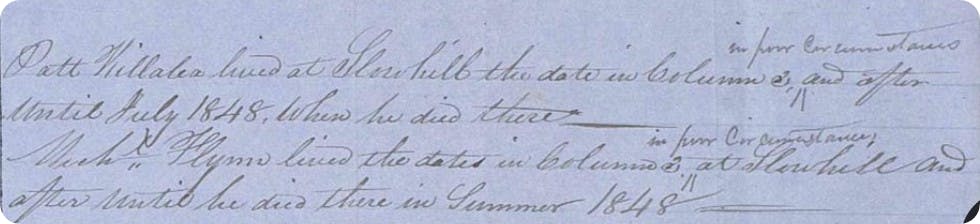 in poor Circumstances
Patt Killalea lived at Slowhill the date in Column 2, and after
until July 1848, When he died there
in poor Circumstances,
Mich.l Flynn lived the dates in Column 2, at Slowhill and
after Until he died there in Summer 1848